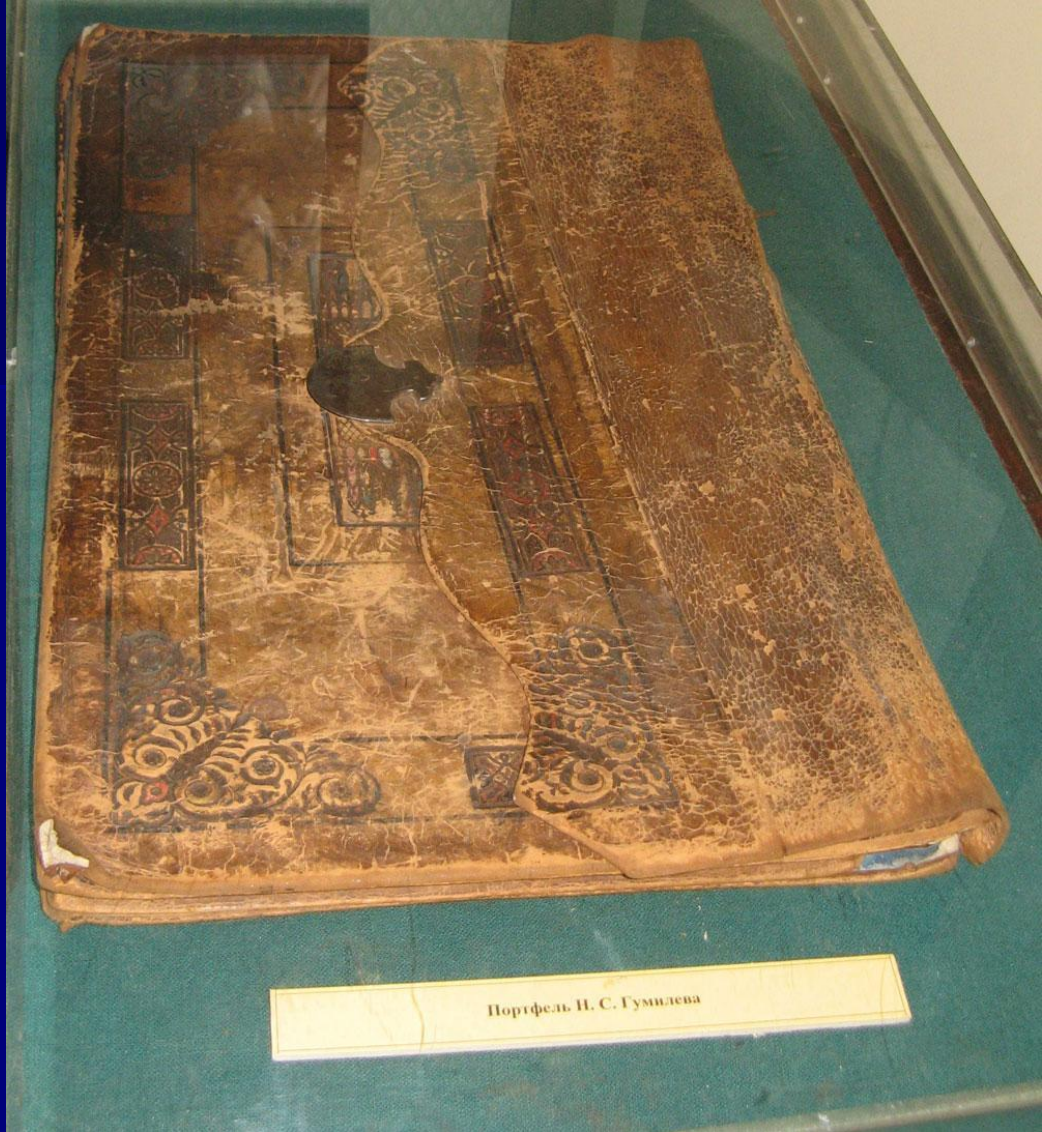 Портфель Н. С. Гумилева